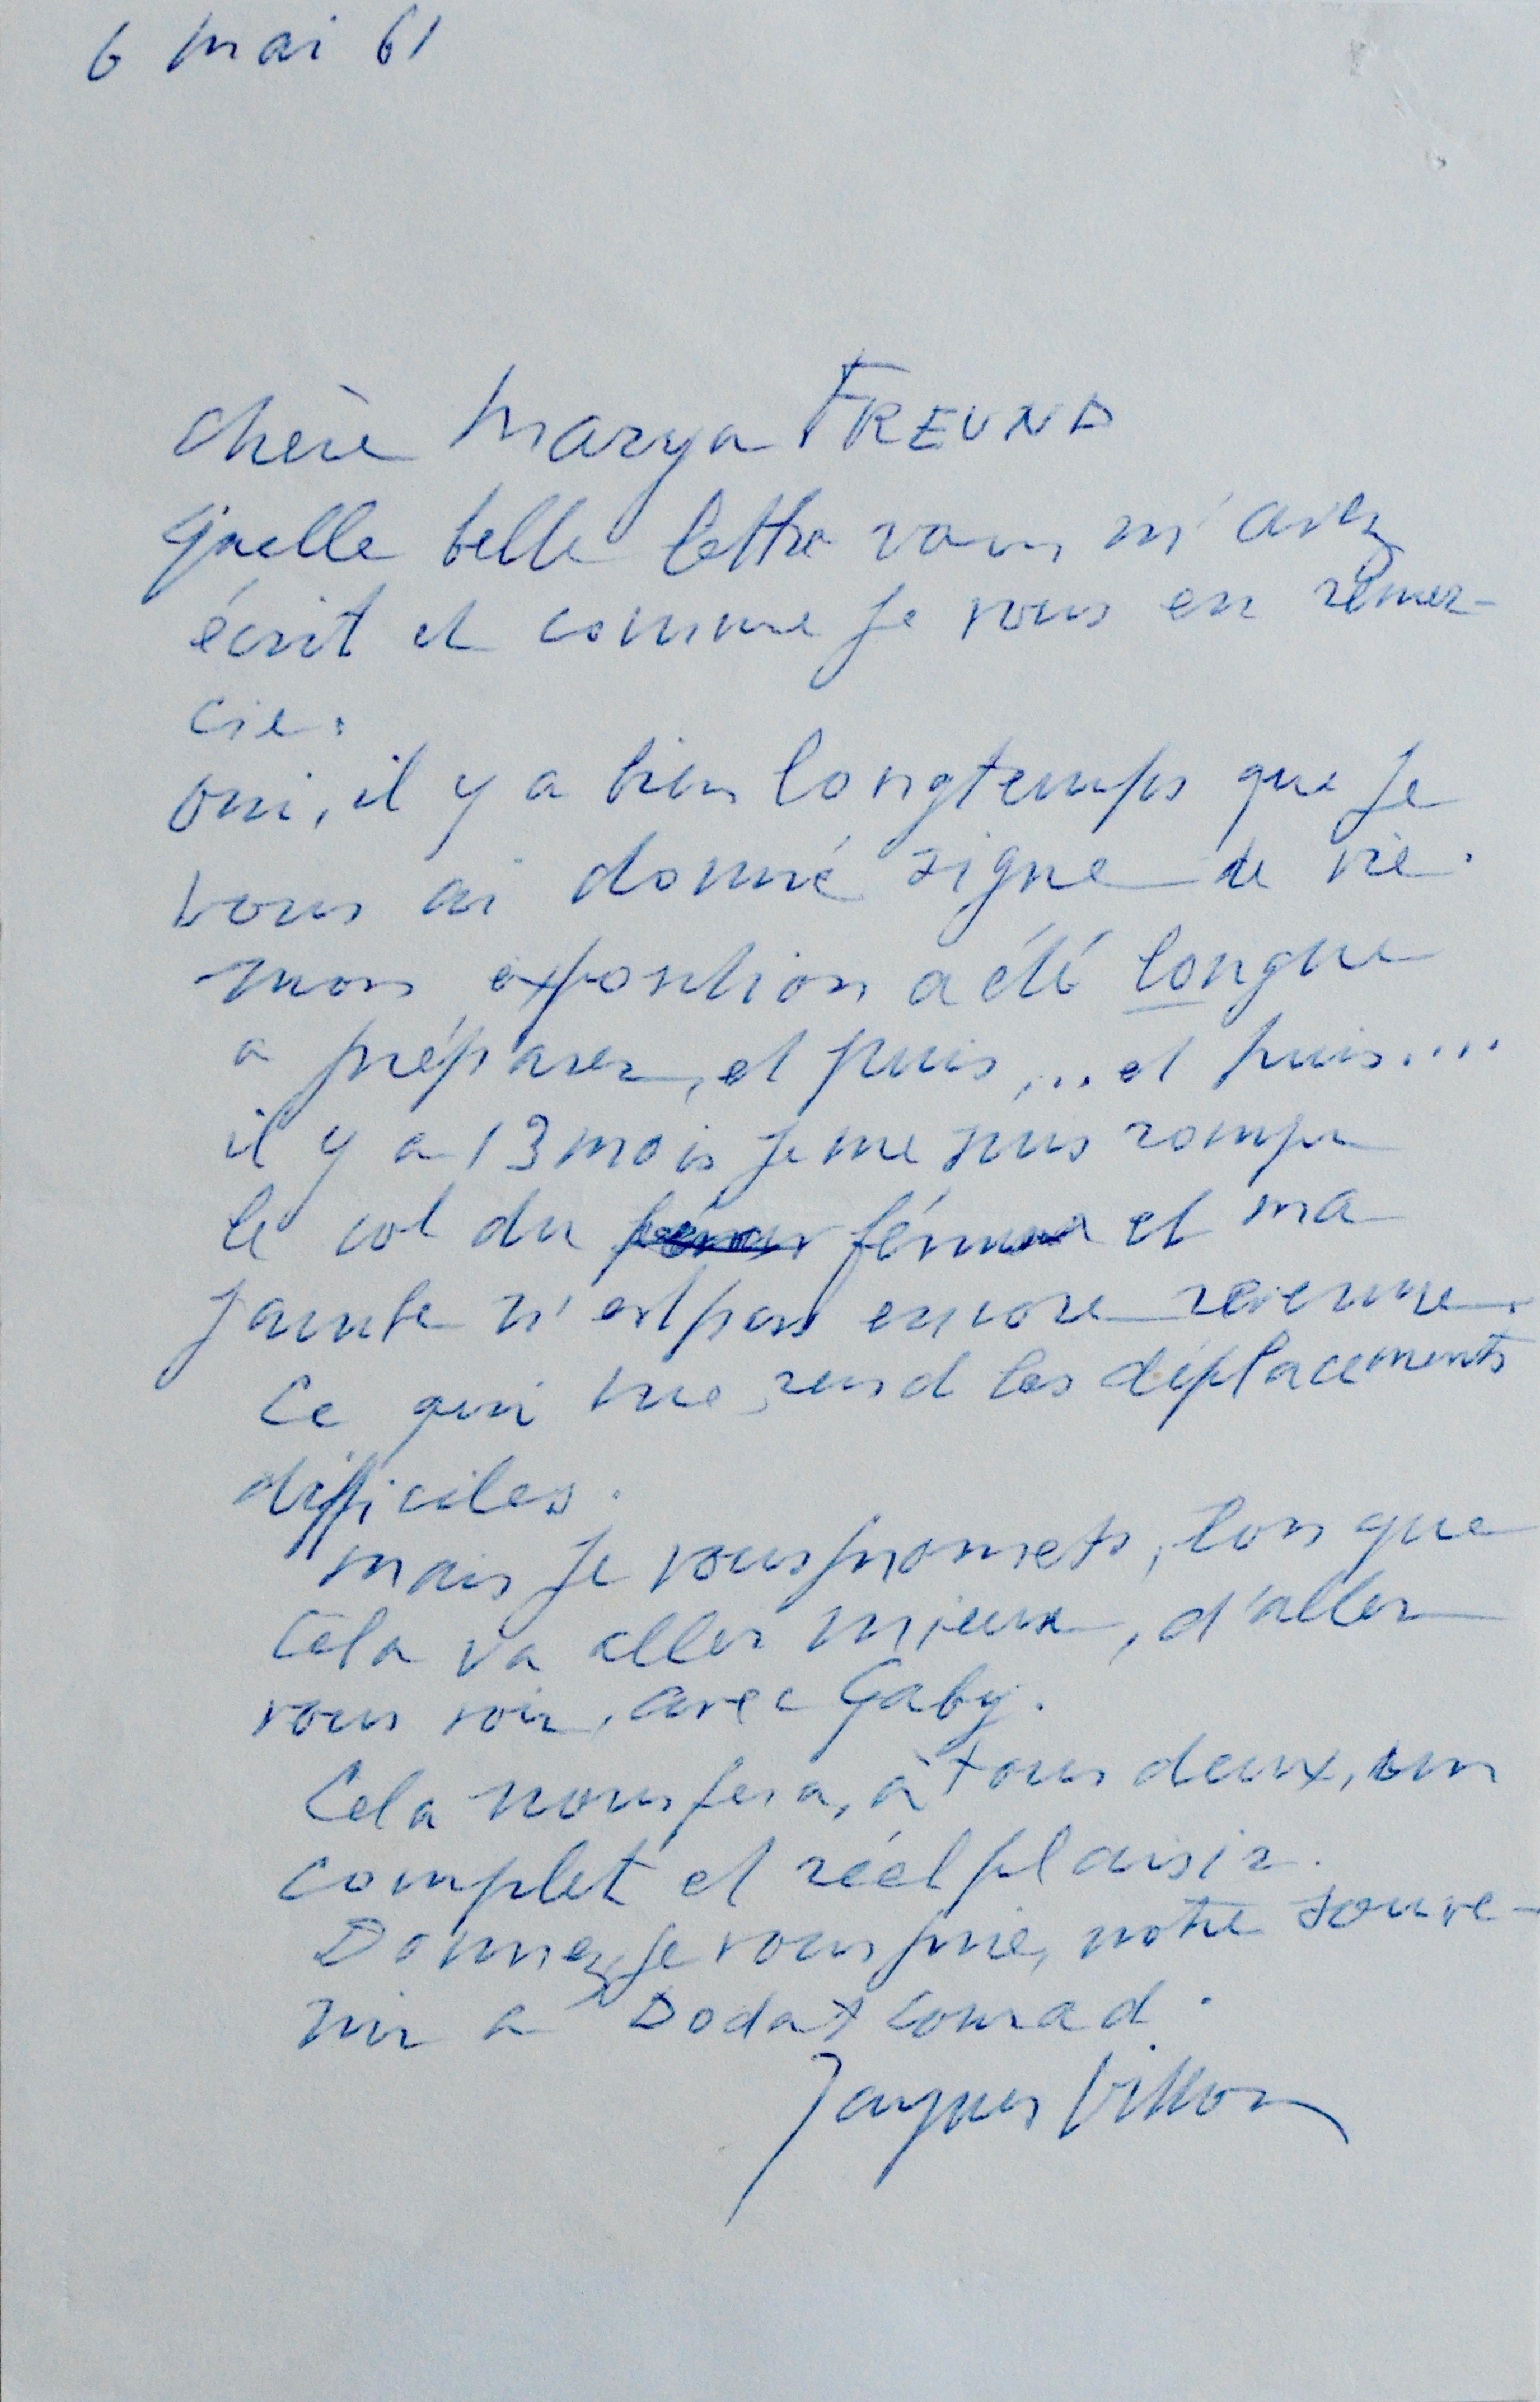 6 mai 61
Chère Marya FREUND
Quelle belle lettre vous m'avez
écrit et comme je vous en remer-
cie.
Oui, il y a bien longtemps que je
vous ai donné signe de vie.
mon exposition a été longue
a préparer, et puis ... et puis ....
il y a 13 mois je me suis rompu
le col du fémur et ma
jambe n'est pas encore revenue.
Ce qui me rend les déplacements
difficiles.
Mais je vous promets, lorsque
cela va aller mieux, d'aller
vous voir, avec Gaby.
Cela nous fera, à tous deux, un
complet et réel plaisir.
Donnez, je vous prie, notre souve-
nir a Doda Conrad.
Jacques Villon